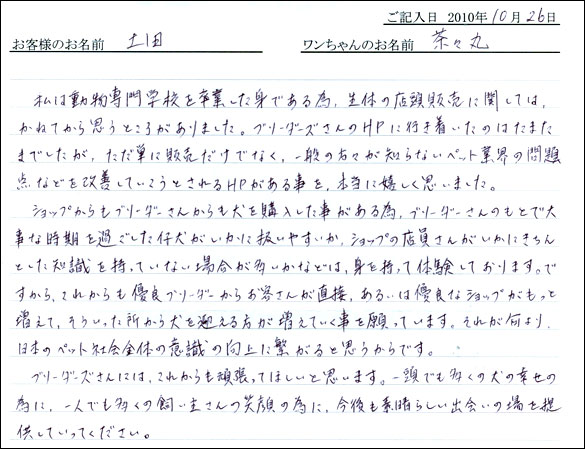 ご記入日 2010年10月26日
お客様のお名前 土田 ワンちゃんのお名前 茶々丸
私は動物専門学校を卒業した身である為、生体の店頭販売に関しては、
かねてから思うところがありました。ブリーダーズさんのHPに行き着いたのはたまた
までしたが、ただ単に販売だけでなく、一般の方々が知らないペット業界の問題
点などを改善していこうとされるHPがある事を、本当に嬉しく思いました。
ショップからもブリーダーさんからも犬を購入した事がある為、ブリーダーさんのもとで大
事な時期を過ごした仔犬がいかに扱いやすいか、ショップの店員さんがいかにきちん
とした知識を持っていない場合が多いかなどは、身を持って体験しております。で
すから、これからも優良ブリーダーからお客さんが直接、あるいは優良なショップがもっと
増えて、そういった所から犬を迎える方が増えていく事を願っています。それが何より、
日本のペット社会全体の意識の向上に繋がると思うからです。
ブリーダーズさんには、これからも頑張ってほしいと思います。一頭でも多くの犬の幸せの
為に、一人でも多くの飼い主さんの笑顔の為に、今後も素晴らしい出会いの場を提
供していってください。